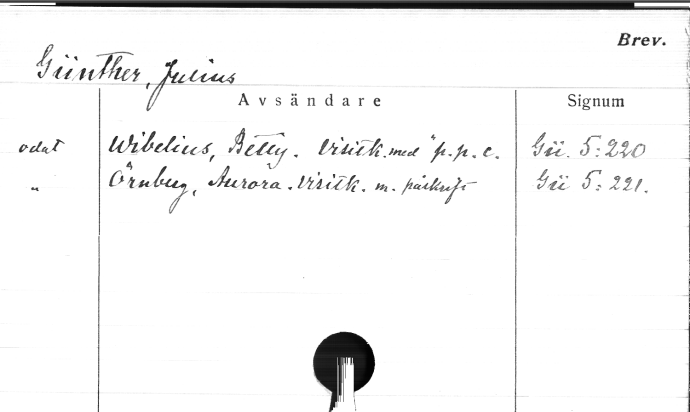 Brev.
Günther, Julius
Avsändare Signum
odat Wibelius, Betty. Visitk. med "p.p.c. Gü. 5:220
" Örnberg, Aurora. Visitk. m. påskrift Gü 5:221.